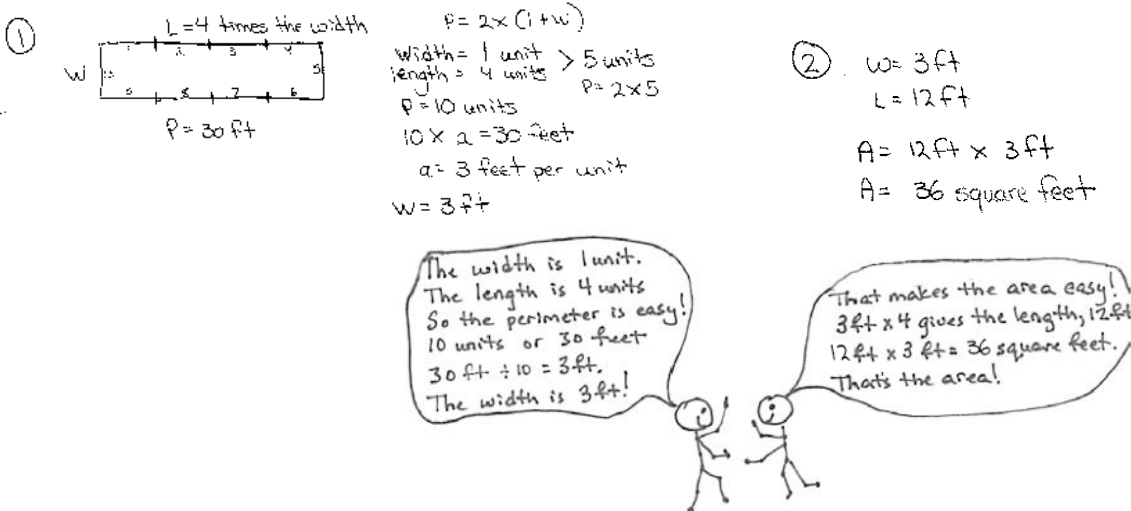 ①
L = 4 times the width
W
1 2 3 4
10 5
9 8 7 6
P = 30 ft
P = 2 x (l + w)
width = 1 unit > 5 units
length = 4 units P = 2 x 5
P = 10 units
10 x a = 30 feet
a = 3 feet per unit
W = 3 ft
②
W = 3 ft
L = 12 ft
A = 12 ft x 3 ft
A = 36 square feet
The width is 1 unit.
The length is 4 units
So the perimeter is easy!
10 units or 30 feet
30 ft ÷ 10 = 3 ft.
The width is 3 ft!
That makes the area easy!
3 ft x 4 gives the length, 12 ft
12 ft x 3 ft = 36 square feet.
That's the area!